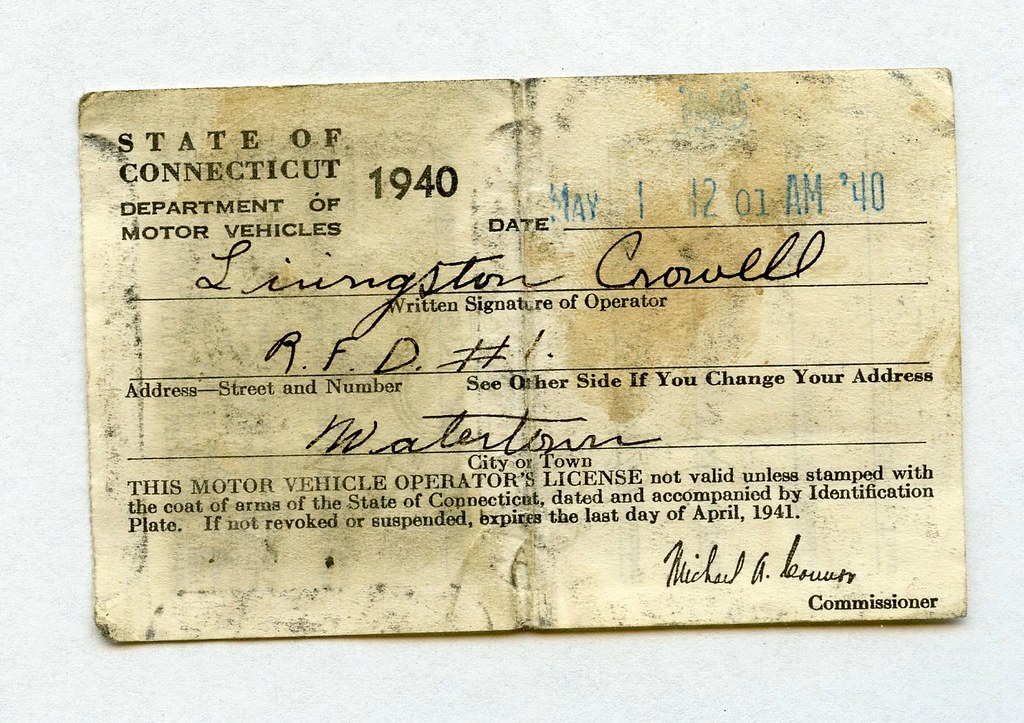 STATE OF
CONNECTICUT
DEPARTMENT OF
MOTOR VEHICLES
1940
DATE MAY 1 12 01 AM '40
Livingston Crowell
Written Signature of Operator
R.F.D. #1.
Address—Street and Number See Other Side If You Change Your Address
Watertown
City or Town
THIS MOTOR VEHICLE OPERATOR'S LICENSE not valid unless stamped with
the coat of arms of the State of Connecticut, dated and accompanied by Identification
Plate. If not revoked or suspended, expires the last day of April, 1941.
Michael A. Connor
Commissioner